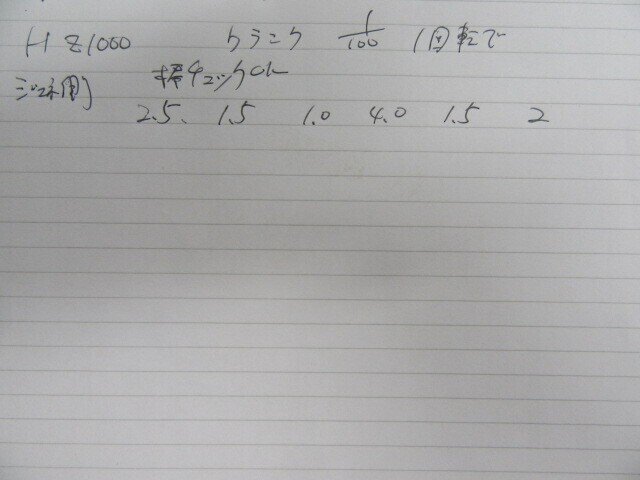 H Z1000 クランク 1/100 1回転で
振チェックOK
2.5. 1.5 1.0 4.0 1.5 2